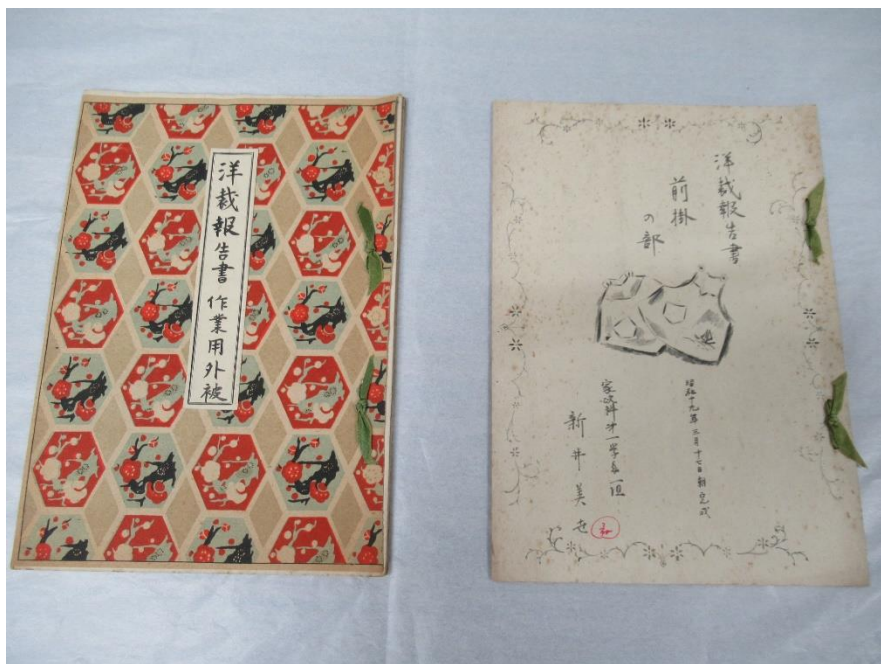 洋裁報告書 作業用外被
洋裁報告書
前掛
の部
昭和十九年三月十七日朝完成
家政科第一学年一組
新井美世